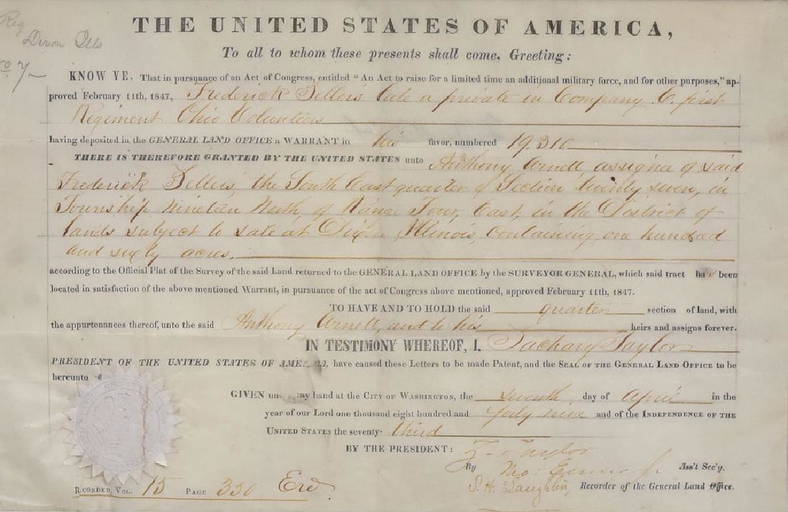 THE UNITED STATES OF AMERICA,
To all to whom these presents shall come, Greeting:
Reg
Dixon Ills
No 7
KNOW YE, That in pursuance of an Act of Congress, entitled "An Act to raise for a limited time an additional military force, and for other purposes," ap-
proved February 11th, 1847, Frederick Sellers late a private in Company C. first
Regiment Ohio Volunteers
having deposited in the GENERAL LAND OFFICE a WARRANT in his favor, numbered 19.310
THERE IS THEREFORE GRANTED BY THE UNITED STATES unto Anthony Arnett, assignee of said
Frederick Sellers, the South East quarter of Section twenty seven, in
Township Nineteen North, of Range Four, East, in the District of
lands subject to sale at Dixon, Illinois, containing one hundred
and sixty acres.
according to the Official Plat of the Survey of the said Land returned to the GENERAL LAND OFFICE by the SURVEYOR GENERAL, which said tract has been
located in satisfaction of the above mentioned Warrant, in pursuance of the act of Congress above mentioned, approved February 11th, 1847.
TO HAVE AND TO HOLD the said quarter section of land, with
the appurtenances thereof, unto the said Anthony Arnett, and to his heirs and assigns forever.
IN TESTIMONY WHEREOF, I, Zachary Taylor
PRESIDENT OF THE UNITED STATES OF AMERICA, have caused these Letters to be made Patent, and the SEAL OF THE GENERAL LAND OFFICE to be
hereunto
GIVEN under my hand at the CITY OF WASHINGTON, the seventh day of April in the
year of our Lord one thousand eight hundred and forty nine and of the INDEPENDENCE OF THE
UNITED STATES the seventy-third
BY THE PRESIDENT: Z. Taylor
By Tho: Ass't Sec'y.
S. H. Laughlin, Recorder of the General Land Office.
RECORDED, VOL. 15 PAGE 330